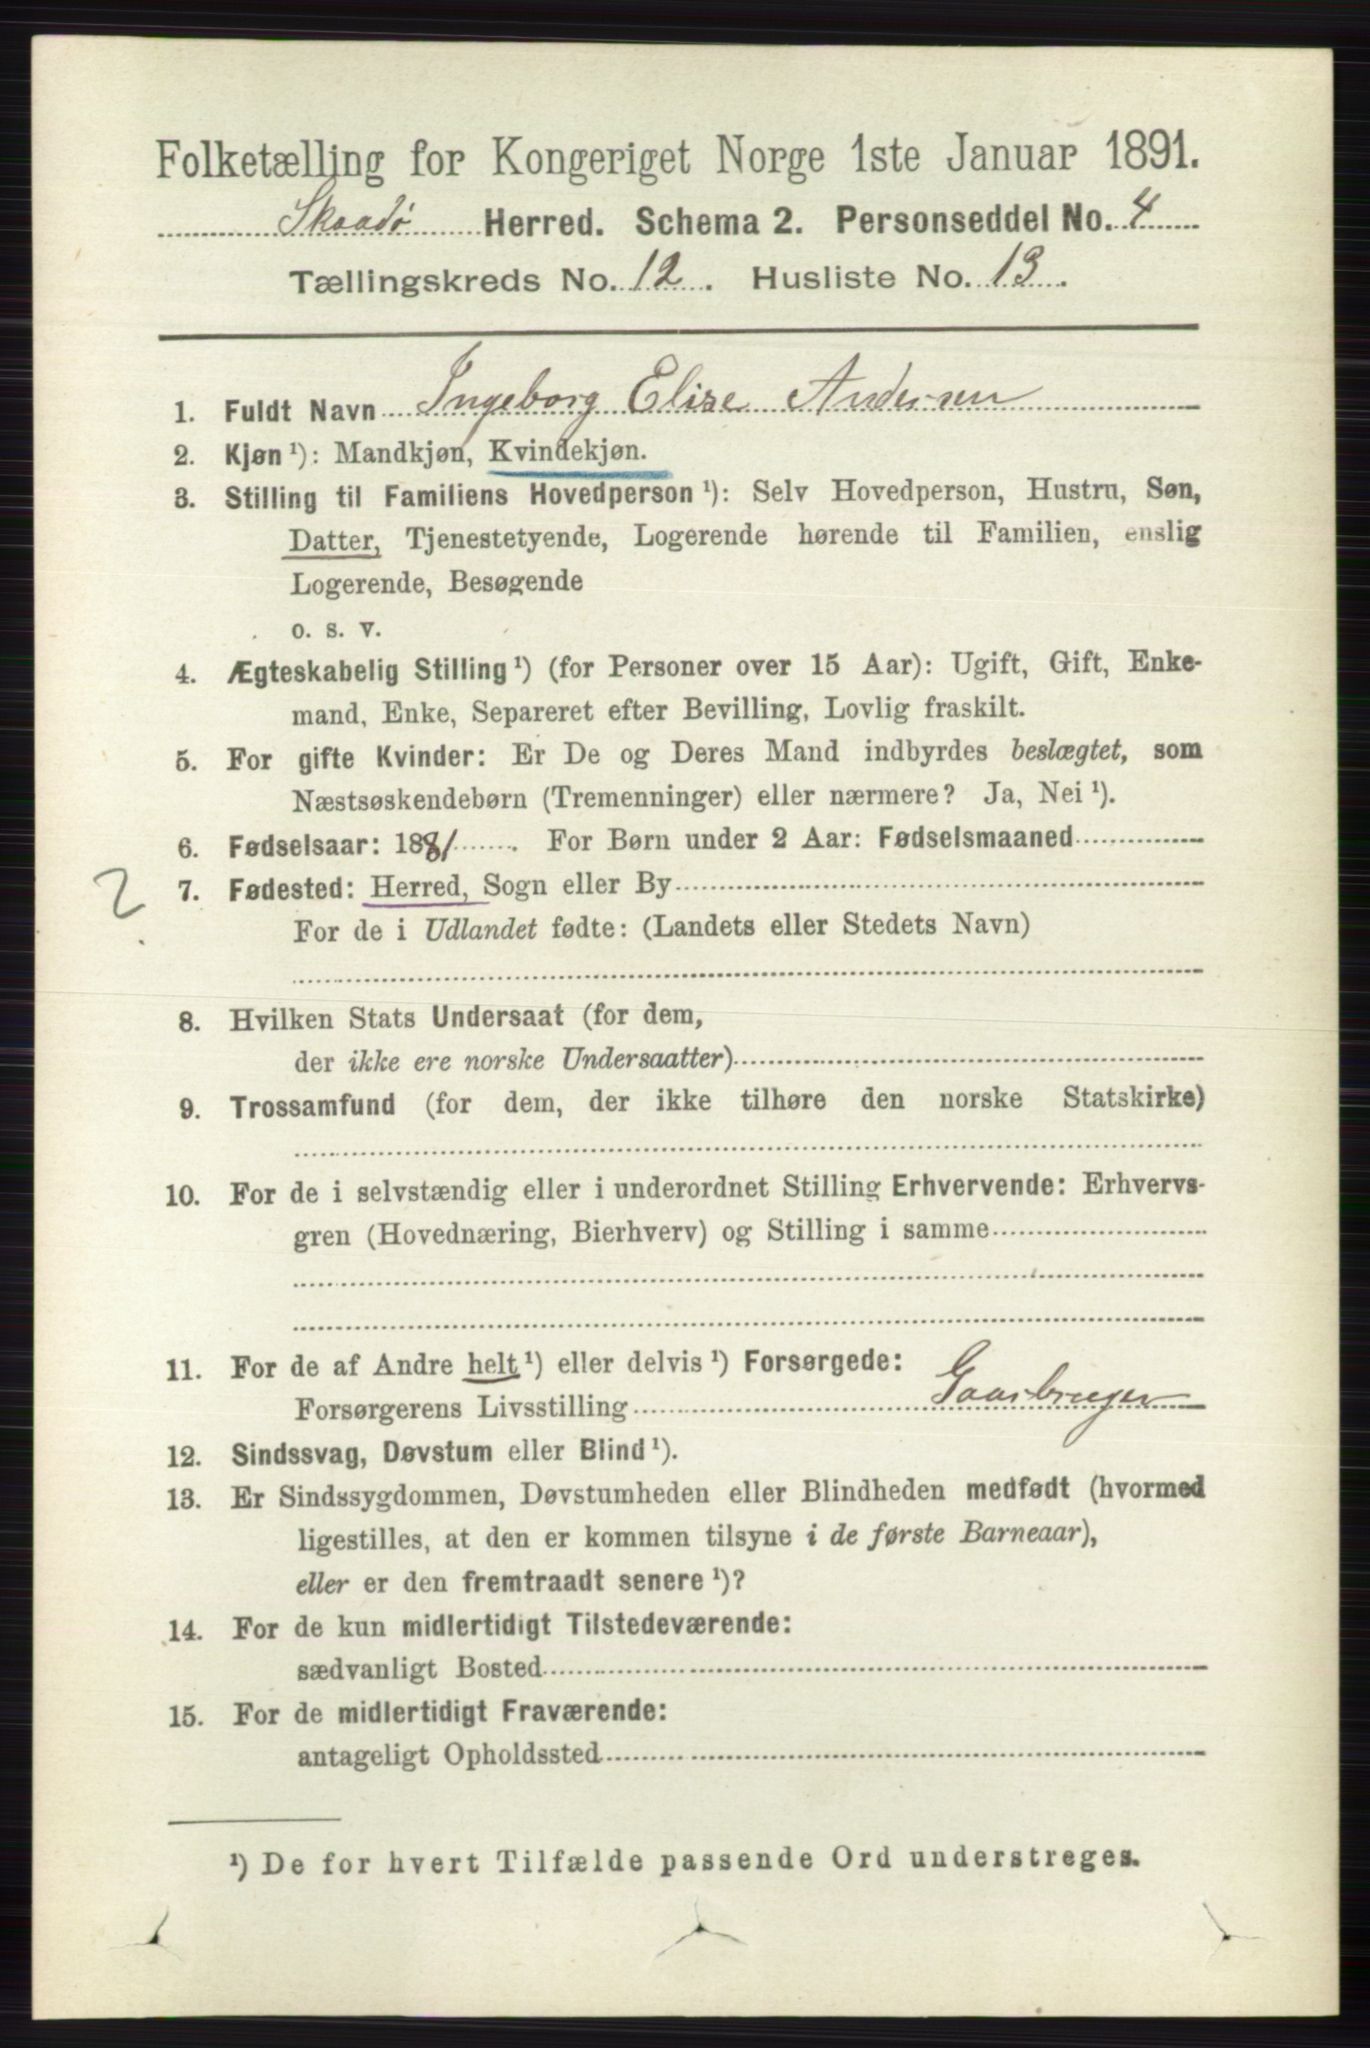 Folketælling for Kongeriget Norge 1ste Januar 1891.
Skaadø Herred. Schema 2. Personseddel No. 4
Tællingskreds No. 12. Husliste No. 13.
1. Fuldt Navn Ingeborg Elise Andersen
2. Kjøn ¹): Mandkjøn, Kvindekjøn.
3. Stilling til Familiens Hovedperson ¹): Selv Hovedperson, Hustru, Søn,
Datter, Tjenestetyende, Logerende hørende til Familien, enslig
Logerende, Besøgende
o. s. v.
4. Ægteskabelig Stilling ¹) (for Personer over 15 Aar): Ugift, Gift, Enke-
mand, Enke, Separeret efter Bevilling, Lovlig fraskilt.
5. For gifte Kvinder: Er De og Deres Mand indbyrdes beslægtet, som
Næstsøskendebørn (Tremenninger) eller nærmere? Ja, Nei ¹).
6. Fødselsaar: 1881. For Børn under 2 Aar: Fødselsmaaned
2 7. Fødested: Herred, Sogn eller By
For de i Udlandet fødte: (Landets eller Stedets Navn)
8. Hvilken Stats Undersaat (for dem,
der ikke ere norske Undersaatter)
9. Trossamfund (for dem, der ikke tilhøre den norske Statskirke)
10. For de i selvstændig eller i underordnet Stilling Erhvervende: Erhvervs-
gren (Hovednæring, Bierhverv) og Stilling i samme
11. For de af Andre helt ¹) eller delvis ¹) Forsørgede:
Forsørgerens Livsstilling Gaarbruger
12. Sindssvag, Døvstum eller Blind ¹).
13. Er Sindssygdommen, Døvstumheden eller Blindheden medfødt (hvormed
ligestilles, at den er kommen tilsyne i de første Barneaar),
eller er den fremtraadt senere ¹)?
14. For de kun midlertidigt Tilstedeværende:
sædvanligt Bosted
15. For de midlertidigt Fraværende:
antageligt Opholdssted
¹) De for hvert Tilfælde passende Ord understreges.